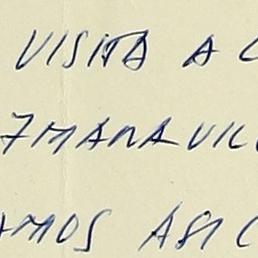 VISITA A C
7 MARAVILL
AMOS ASI C